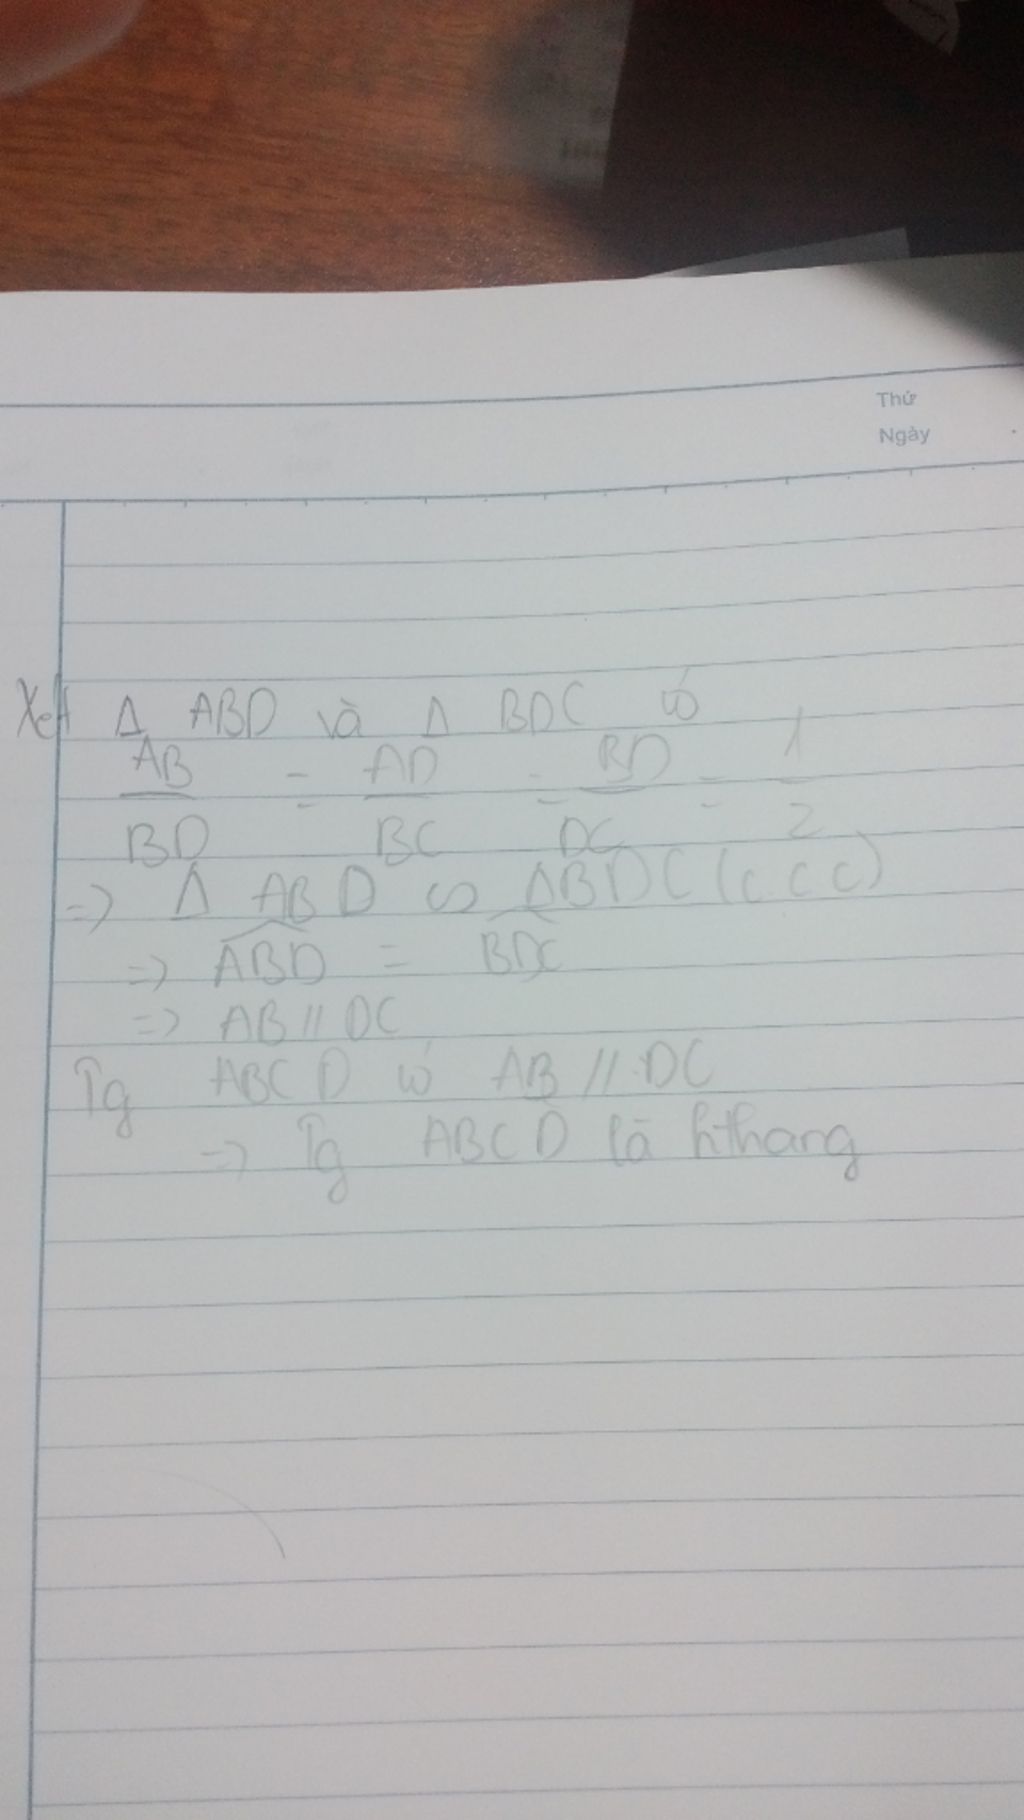 Thứ
Ngày
Xét Δ ABD và Δ BDC có
AB/BD = AD/BC = BD/DC = 1/2
=> Δ ABD ∽ ΔBDC (c c c)
=> \widehat{ABD} = \widehat{BDC}
=> AB // DC
Tg ABCD có AB // DC
=> Tg ABCD là hthang